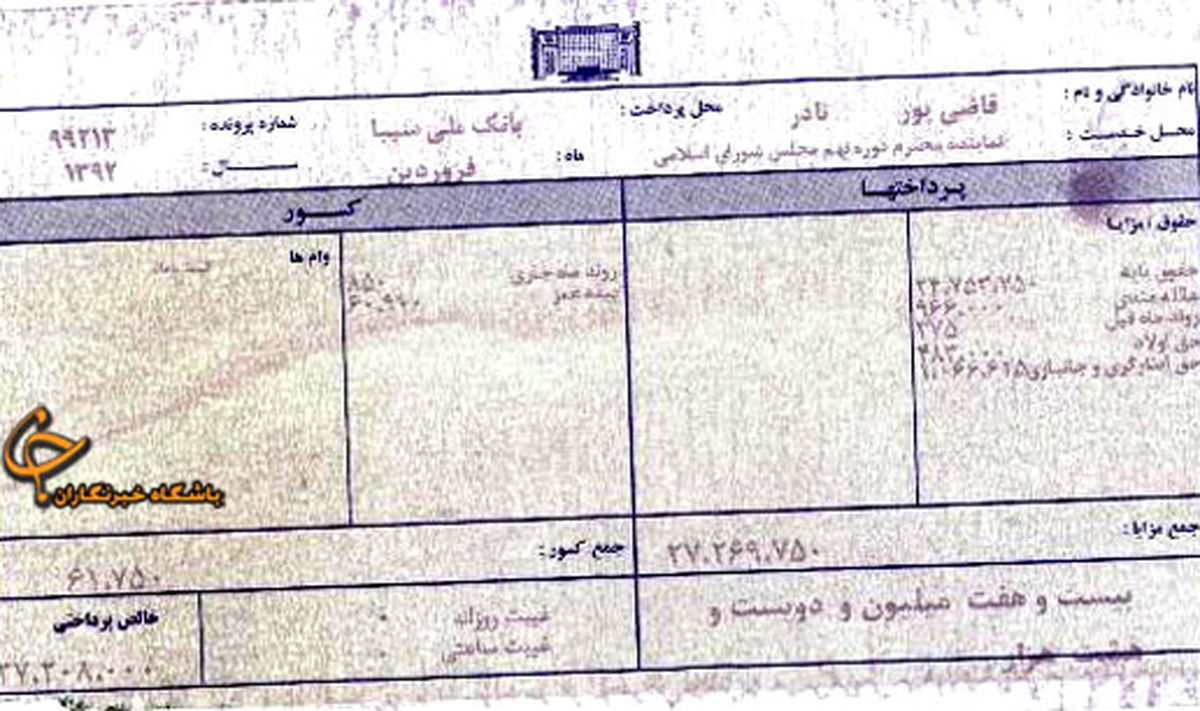 نام خانوادگی و نام : قاضی پور نادر محل پرداخت : بانک ملی شماره پرونده : ۹۹۲۱۳
محل خدمت : نماینده محترم دوره نهم مجلس شورای اسلامی ماه : فروردین سال : ۱۳۹۲
پرداختها کسور
حقوق و مزایا
وام ها
حقوق پایه ۲۴.۷۵۳.۷۵۰
۹۶۶.۰۰۰
روند ماه قبل ۳۷۵
حق اولاد ۴۸۳.۰۰۰
حق ایثارگری و جانبازی ۱.۰۶۶.۶۲۵
روند ماه جاری ۸۵۰
بیمه عمر ۶۰.۹۰۰
باشگاه خبرنگاران
جمع مزایا : ۲۷.۲۶۹.۷۵۰ جمع کسور : ۶۱.۷۵۰
بیست و هفت میلیون و دویست و
هشت هزار
غیبت روزانه ۰
غیبت ساعتی ۰
خالص پرداختی
۲۷.۲۰۸.۰۰۰